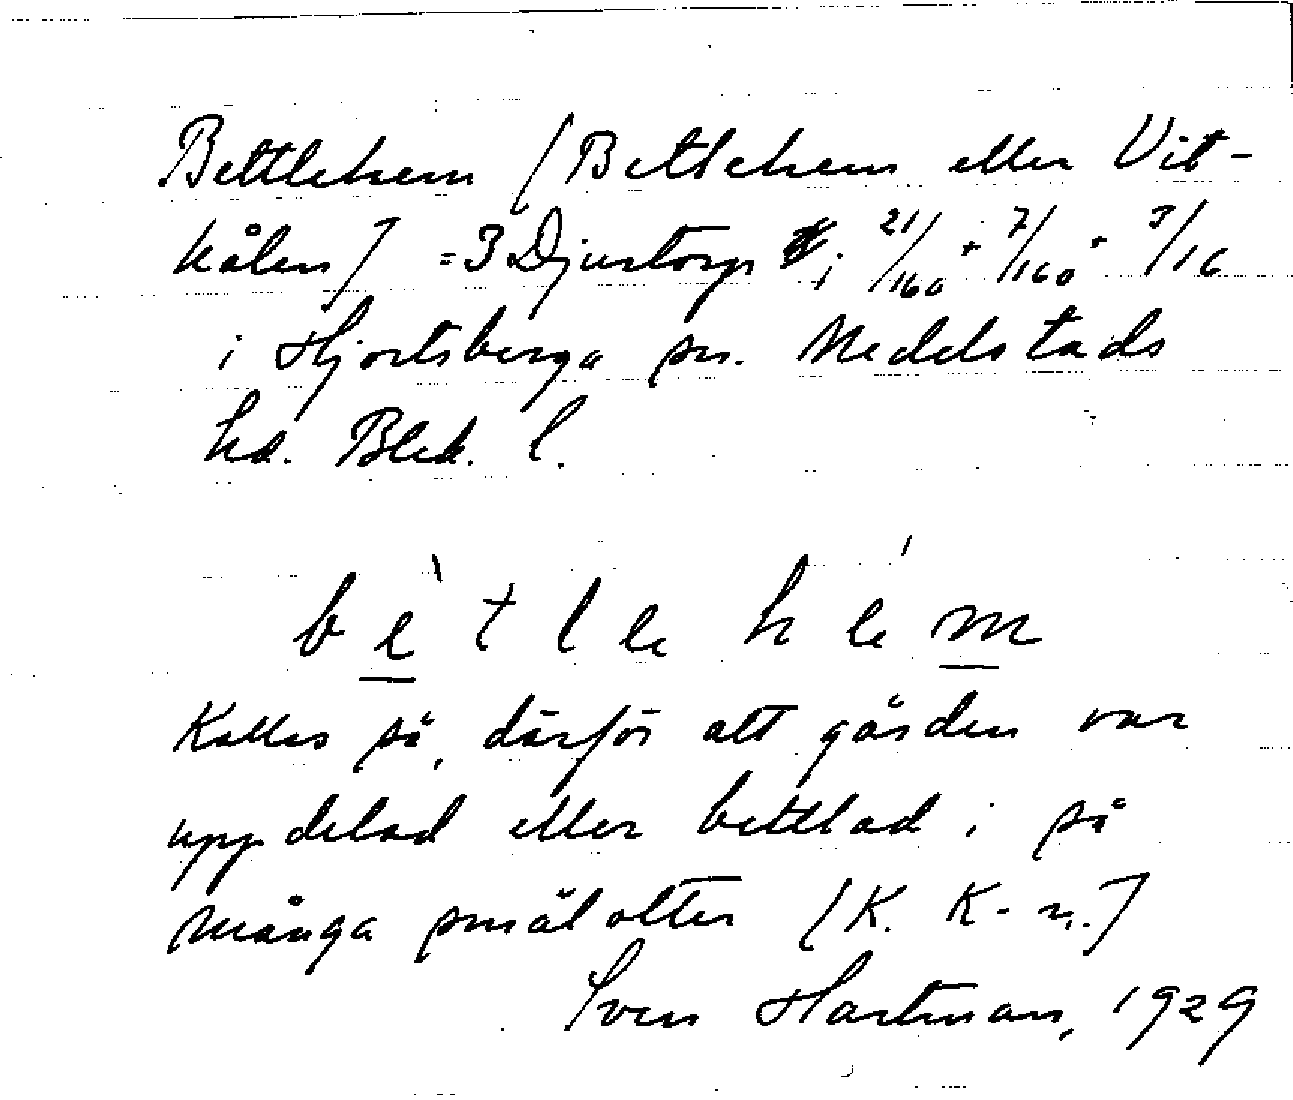 Bettlehem (Betlehem eller Vit-
kålen) = 3 Djurtorp i 21/160 + 7/160 + 3/16
i Hjortsberga sn. Medelstads
hd. Blek. l.
bètlehém
Kallas så, därför att gården var
uppdelad eller bettlad i så
många smålotter (K. K-n.)
Sven Hartman, 1929